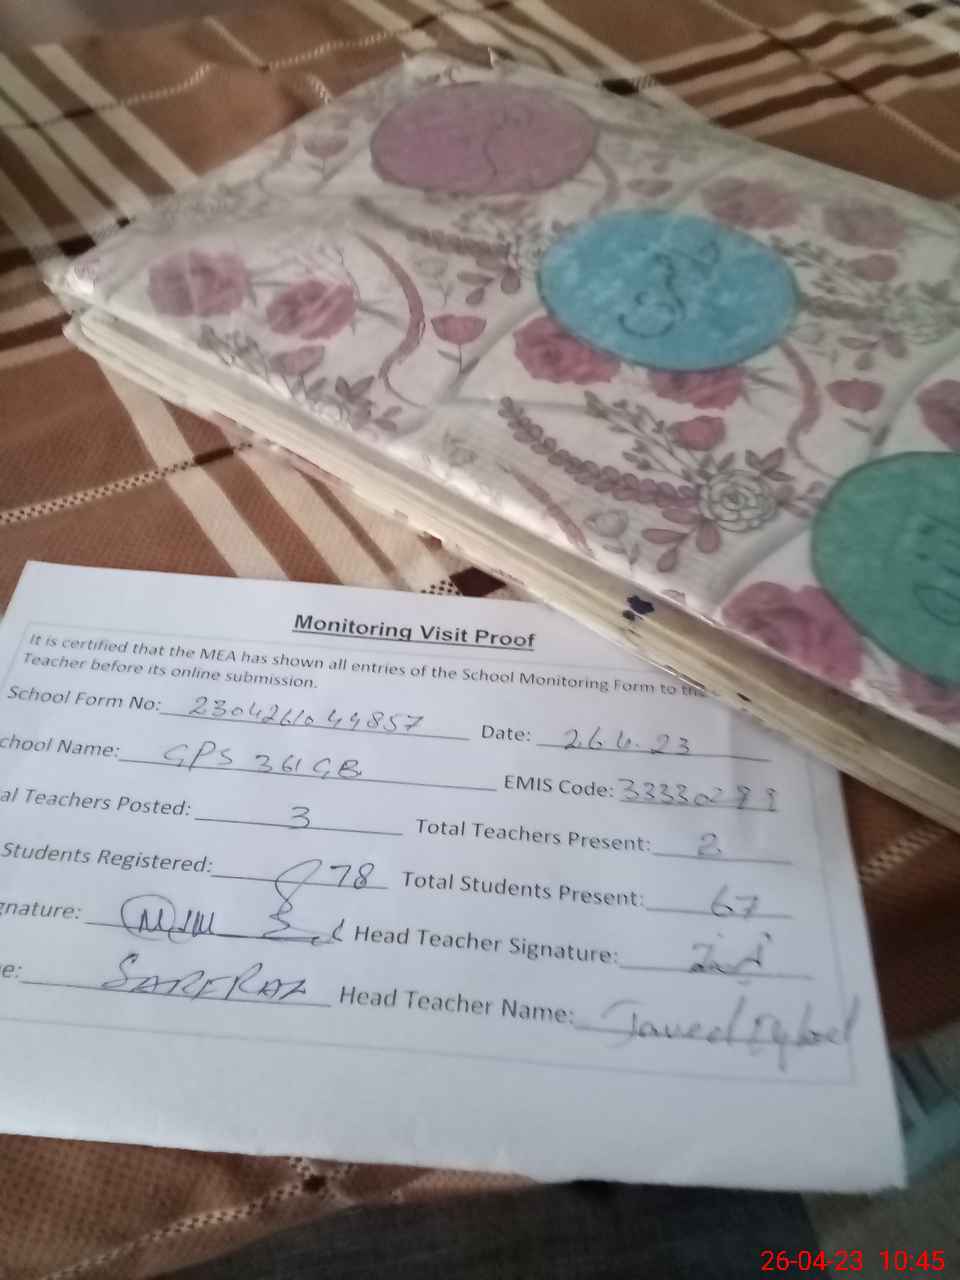 Monitoring Visit Proof
It is certified that the MEA has shown all entries of the School Monitoring Form to the
Teacher before its online submission.
School Form No: 23042610 44857 Date: 26.4.23
chool Name: GPS 361 GB EMIS Code: 33330299
al Teachers Posted: 3 Total Teachers Present: 2
Students Registered: 78 Total Students Present: 67
gnature: Head Teacher Signature:
e: SARFRAZ Head Teacher Name: Javed Iqbal
26-04-23 10:45